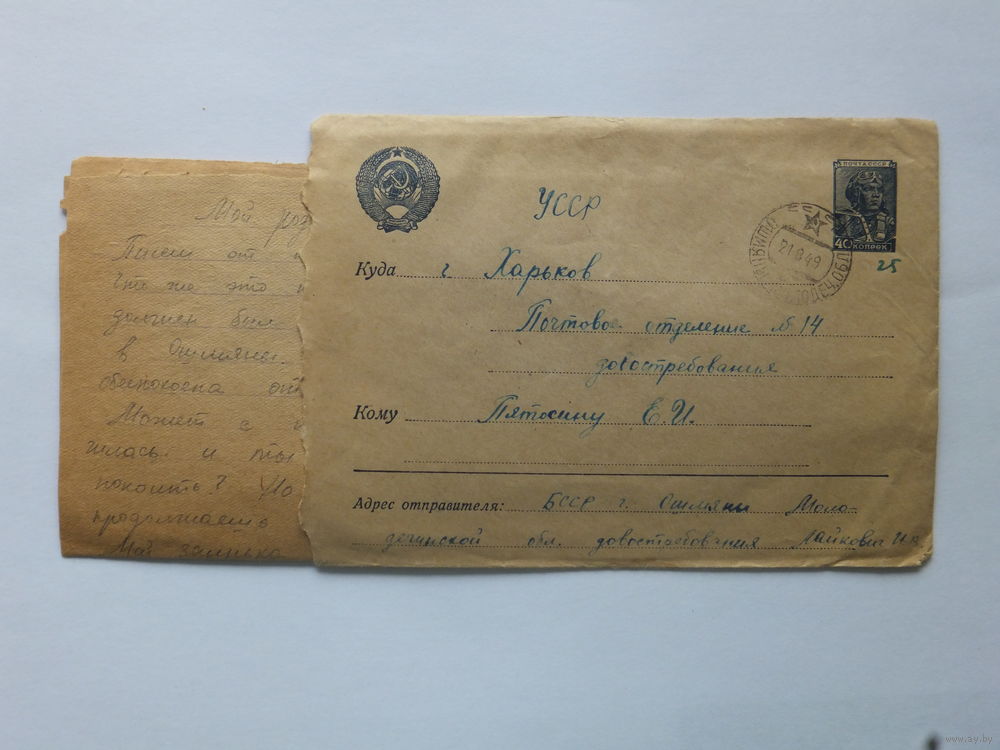 Мой
Писем от
Что же это
должен был
в Ошмяны.
обеспокоена
Может с
илась и ты
покоить? Но
продолжаешь
Мой заинька
ПОЧТА СССР
40 КОПЕЕК
25
21 49
УССР
Куда г Харьков
Почтовое отделение № 14
довостребования
Кому Пятосину Е.И.
Адрес отправителя: БССР г. Ошмяни Моло-
дечинской обл. довостребования Лайкович
www.ay.by